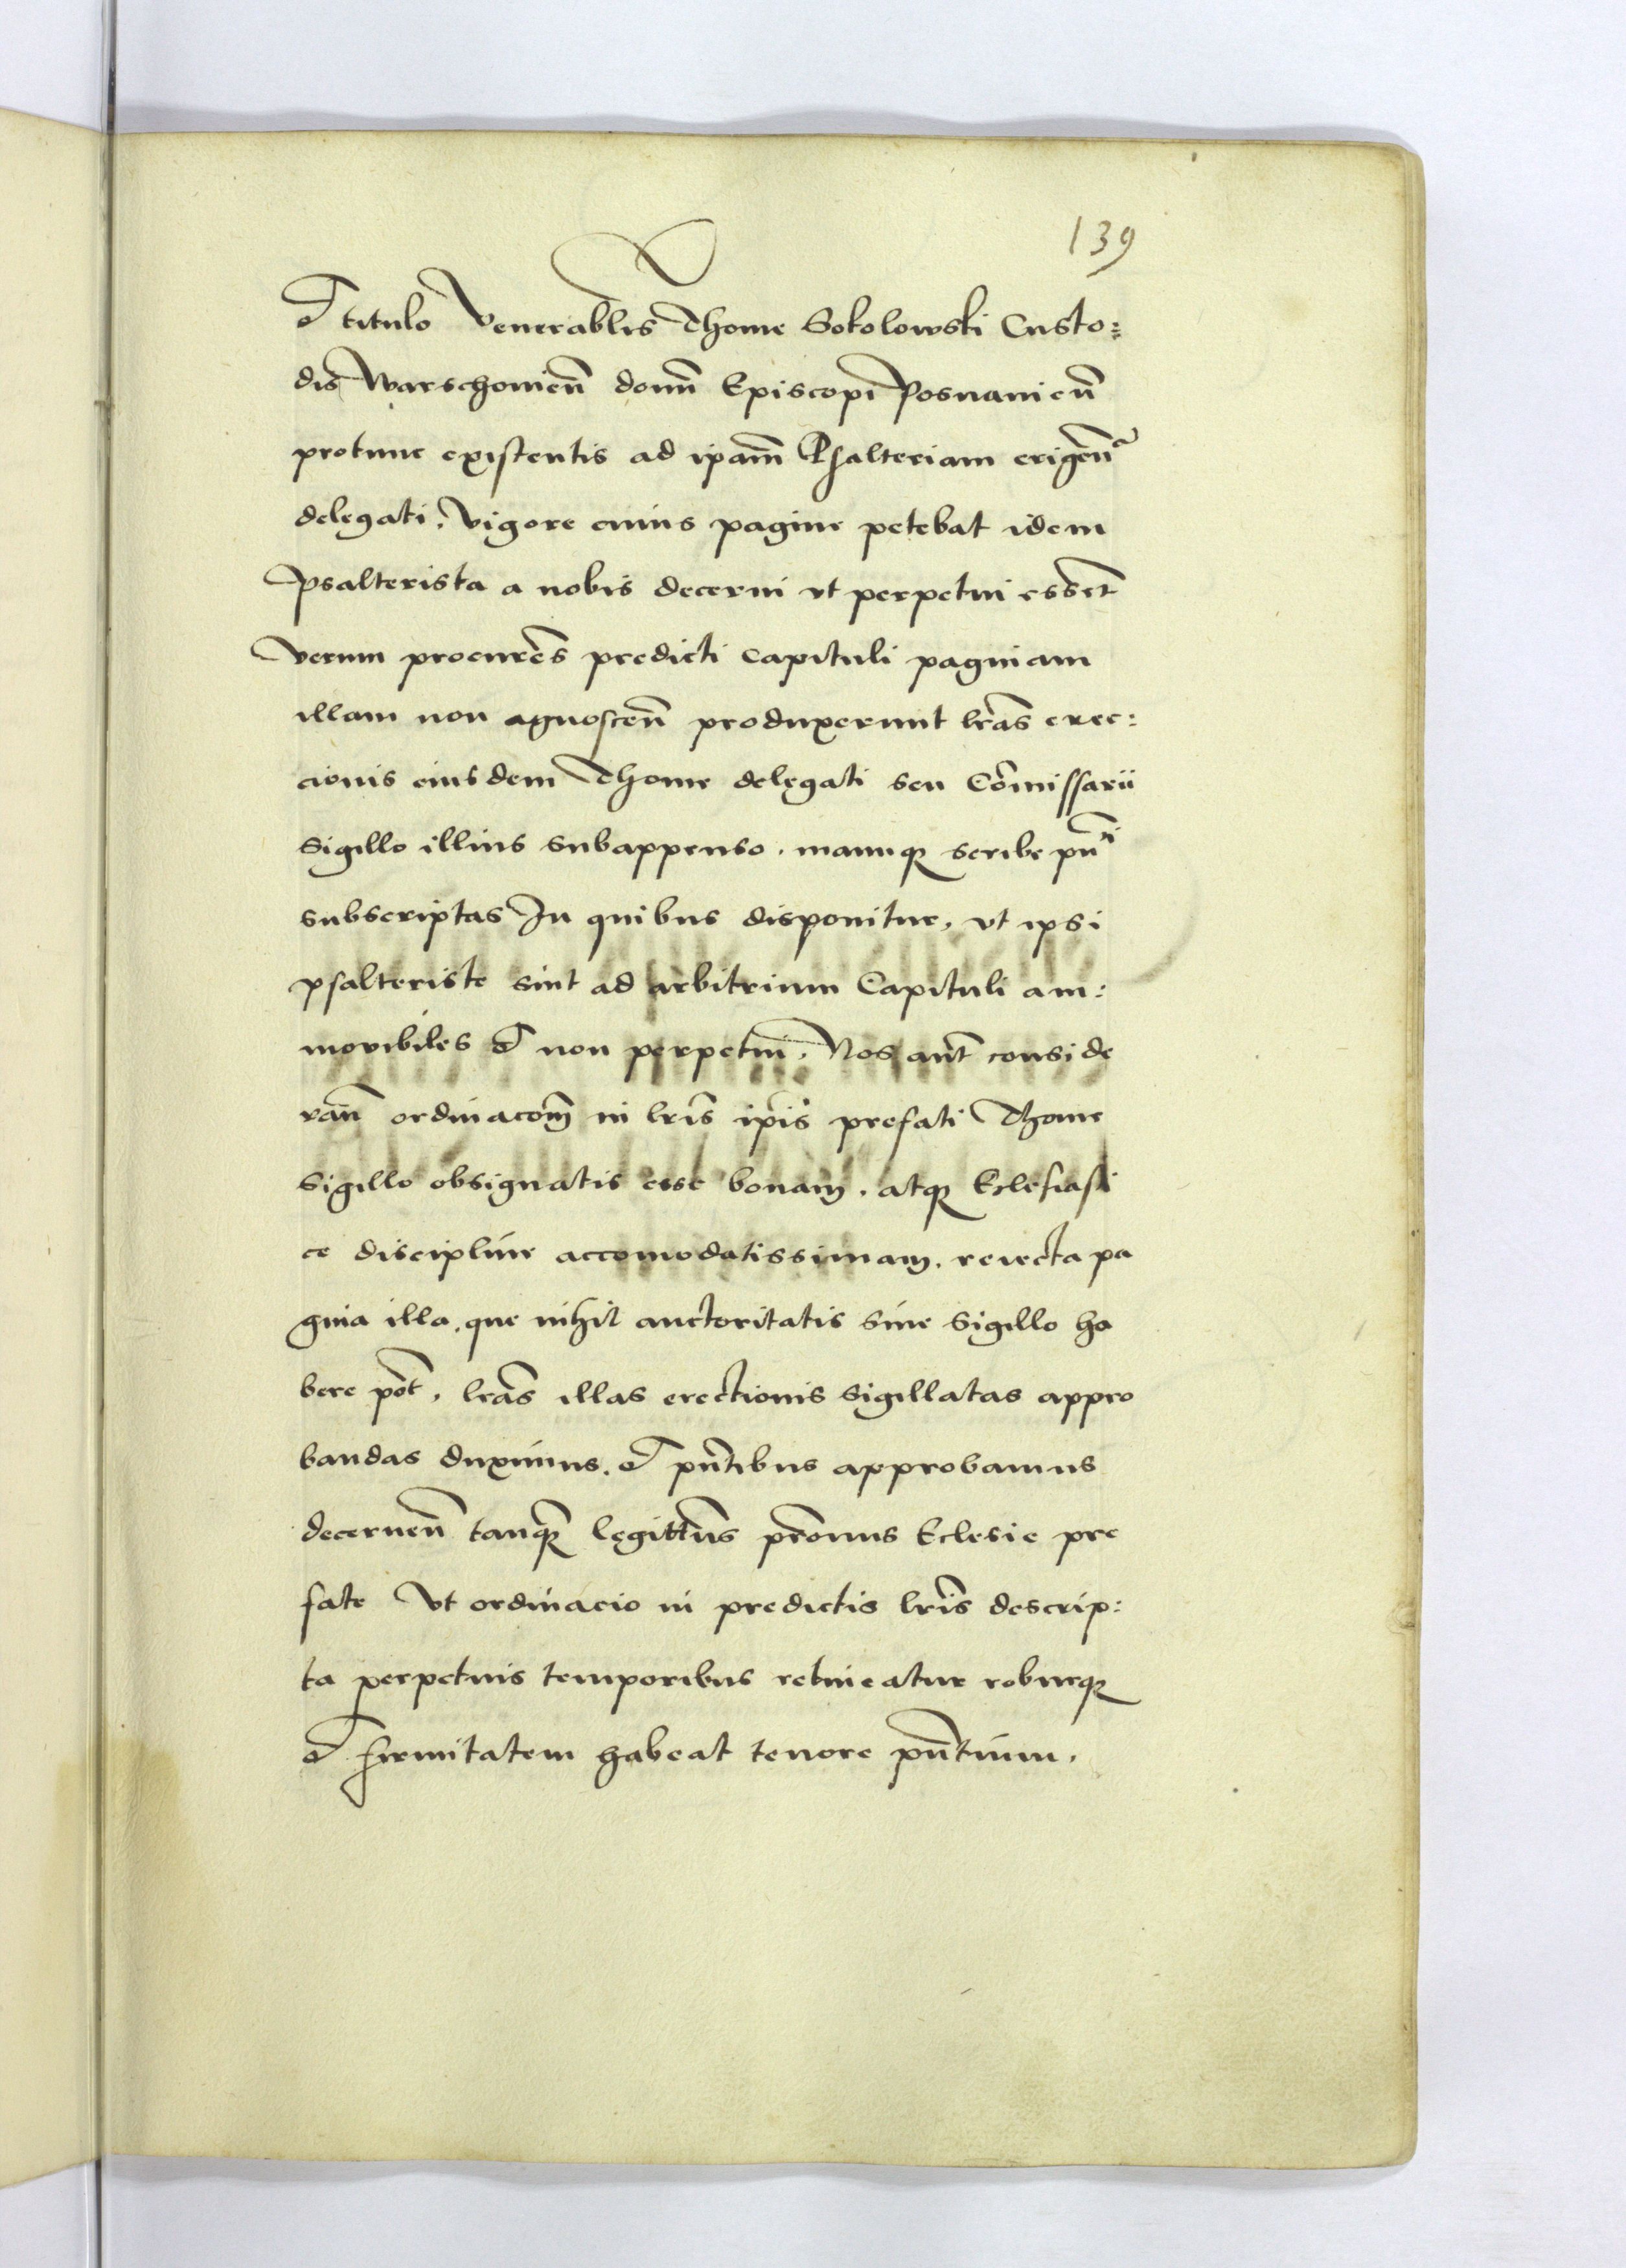 139
Et titulo Venerabłis Thome Sokolowski Custo:
dis Warschouień domń Episcopi Posnanień
protunc existentis ad ipam̃ Psalteriam erigeñ
delegati. Vigore cuius pagine petebat idem
Psalterista a nobis decerni vt perpetui esseñt
Verum procur̃es predicti capituli paginam
illam non agnosceñ produxerunt lr̃as erec:
cionis eiusdem Thome delegati seu Com̃issarii
Sigillo illius subappenso. manuq; scribe pñti
subscriptas In quibus disponitur, vt ipsi
psalteriste sint ad arbitrium Capituli am:
mouibiles et non perpetui. Nos aut̃ conside
rañ ordinacom̃ in lr̃is ip̃is prefati Thome
Sigillo obsignatis esse bonam. atq; Eclesiasti
ce discipline accomodatissimam. reiecta pa
gina illa. que nihil auctoritatis sine Sigillo ha
bere pot̃. lr̃as illas erectionis sigillatas appro
bandas duximus. et pñtibus approbamus
decerneñ tanq̃ legittim̃s pr̃onus Eclesie pre
fate Vt ordinacio in predictis lr̃is descrip:
ta perpetuis temporibus retineatur roburq;
et firmitatem habeat tenore pñtium.